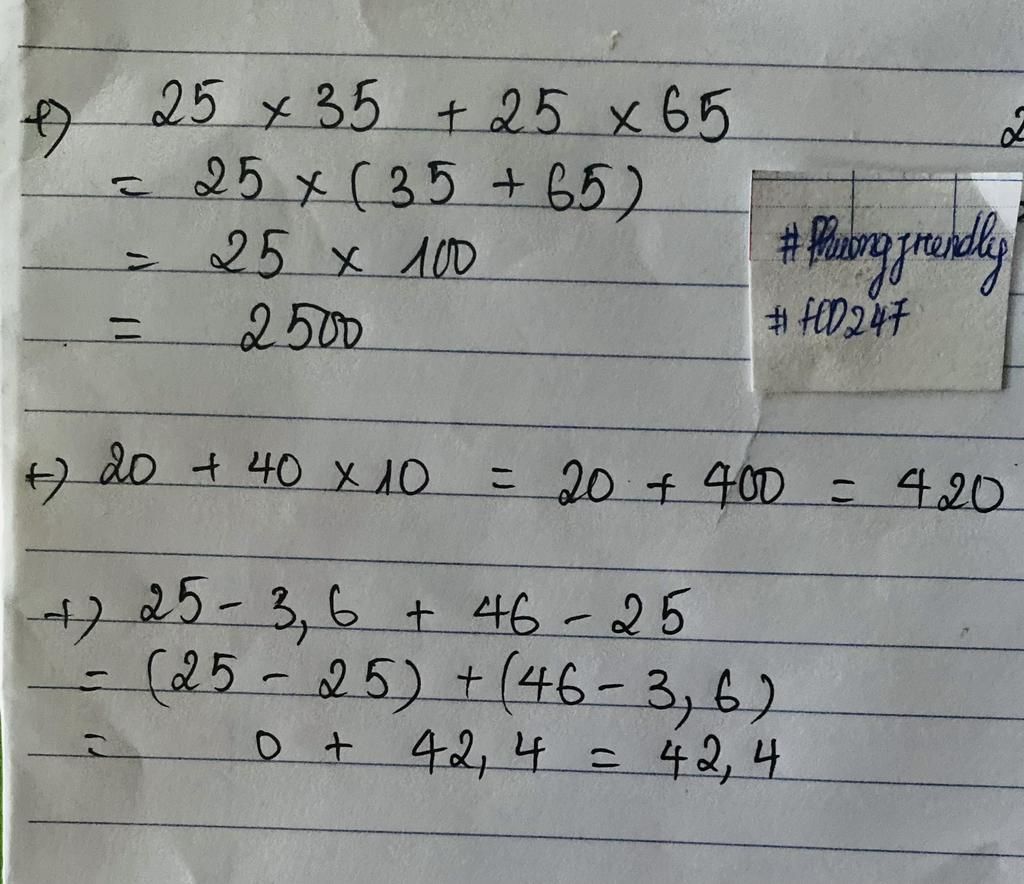 +) 25 × 35 + 25 × 65
= 25 × (35 + 65)
= 25 × 100
= 2500
#Phuongfriendly
#HD247
+) 20 + 40 × 10 = 20 + 400 = 420
+) 25 - 3,6 + 46 - 25
= (25 - 25) + (46 - 3,6)
= 0 + 42,4 = 42,4